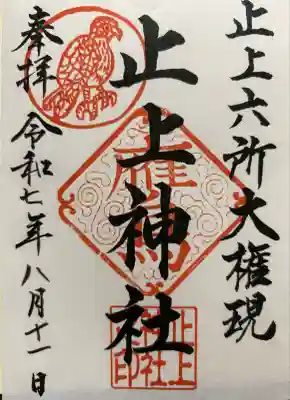 止上六所大権現
止上神社
奉拝 令和七年八月十一日
止上神社印